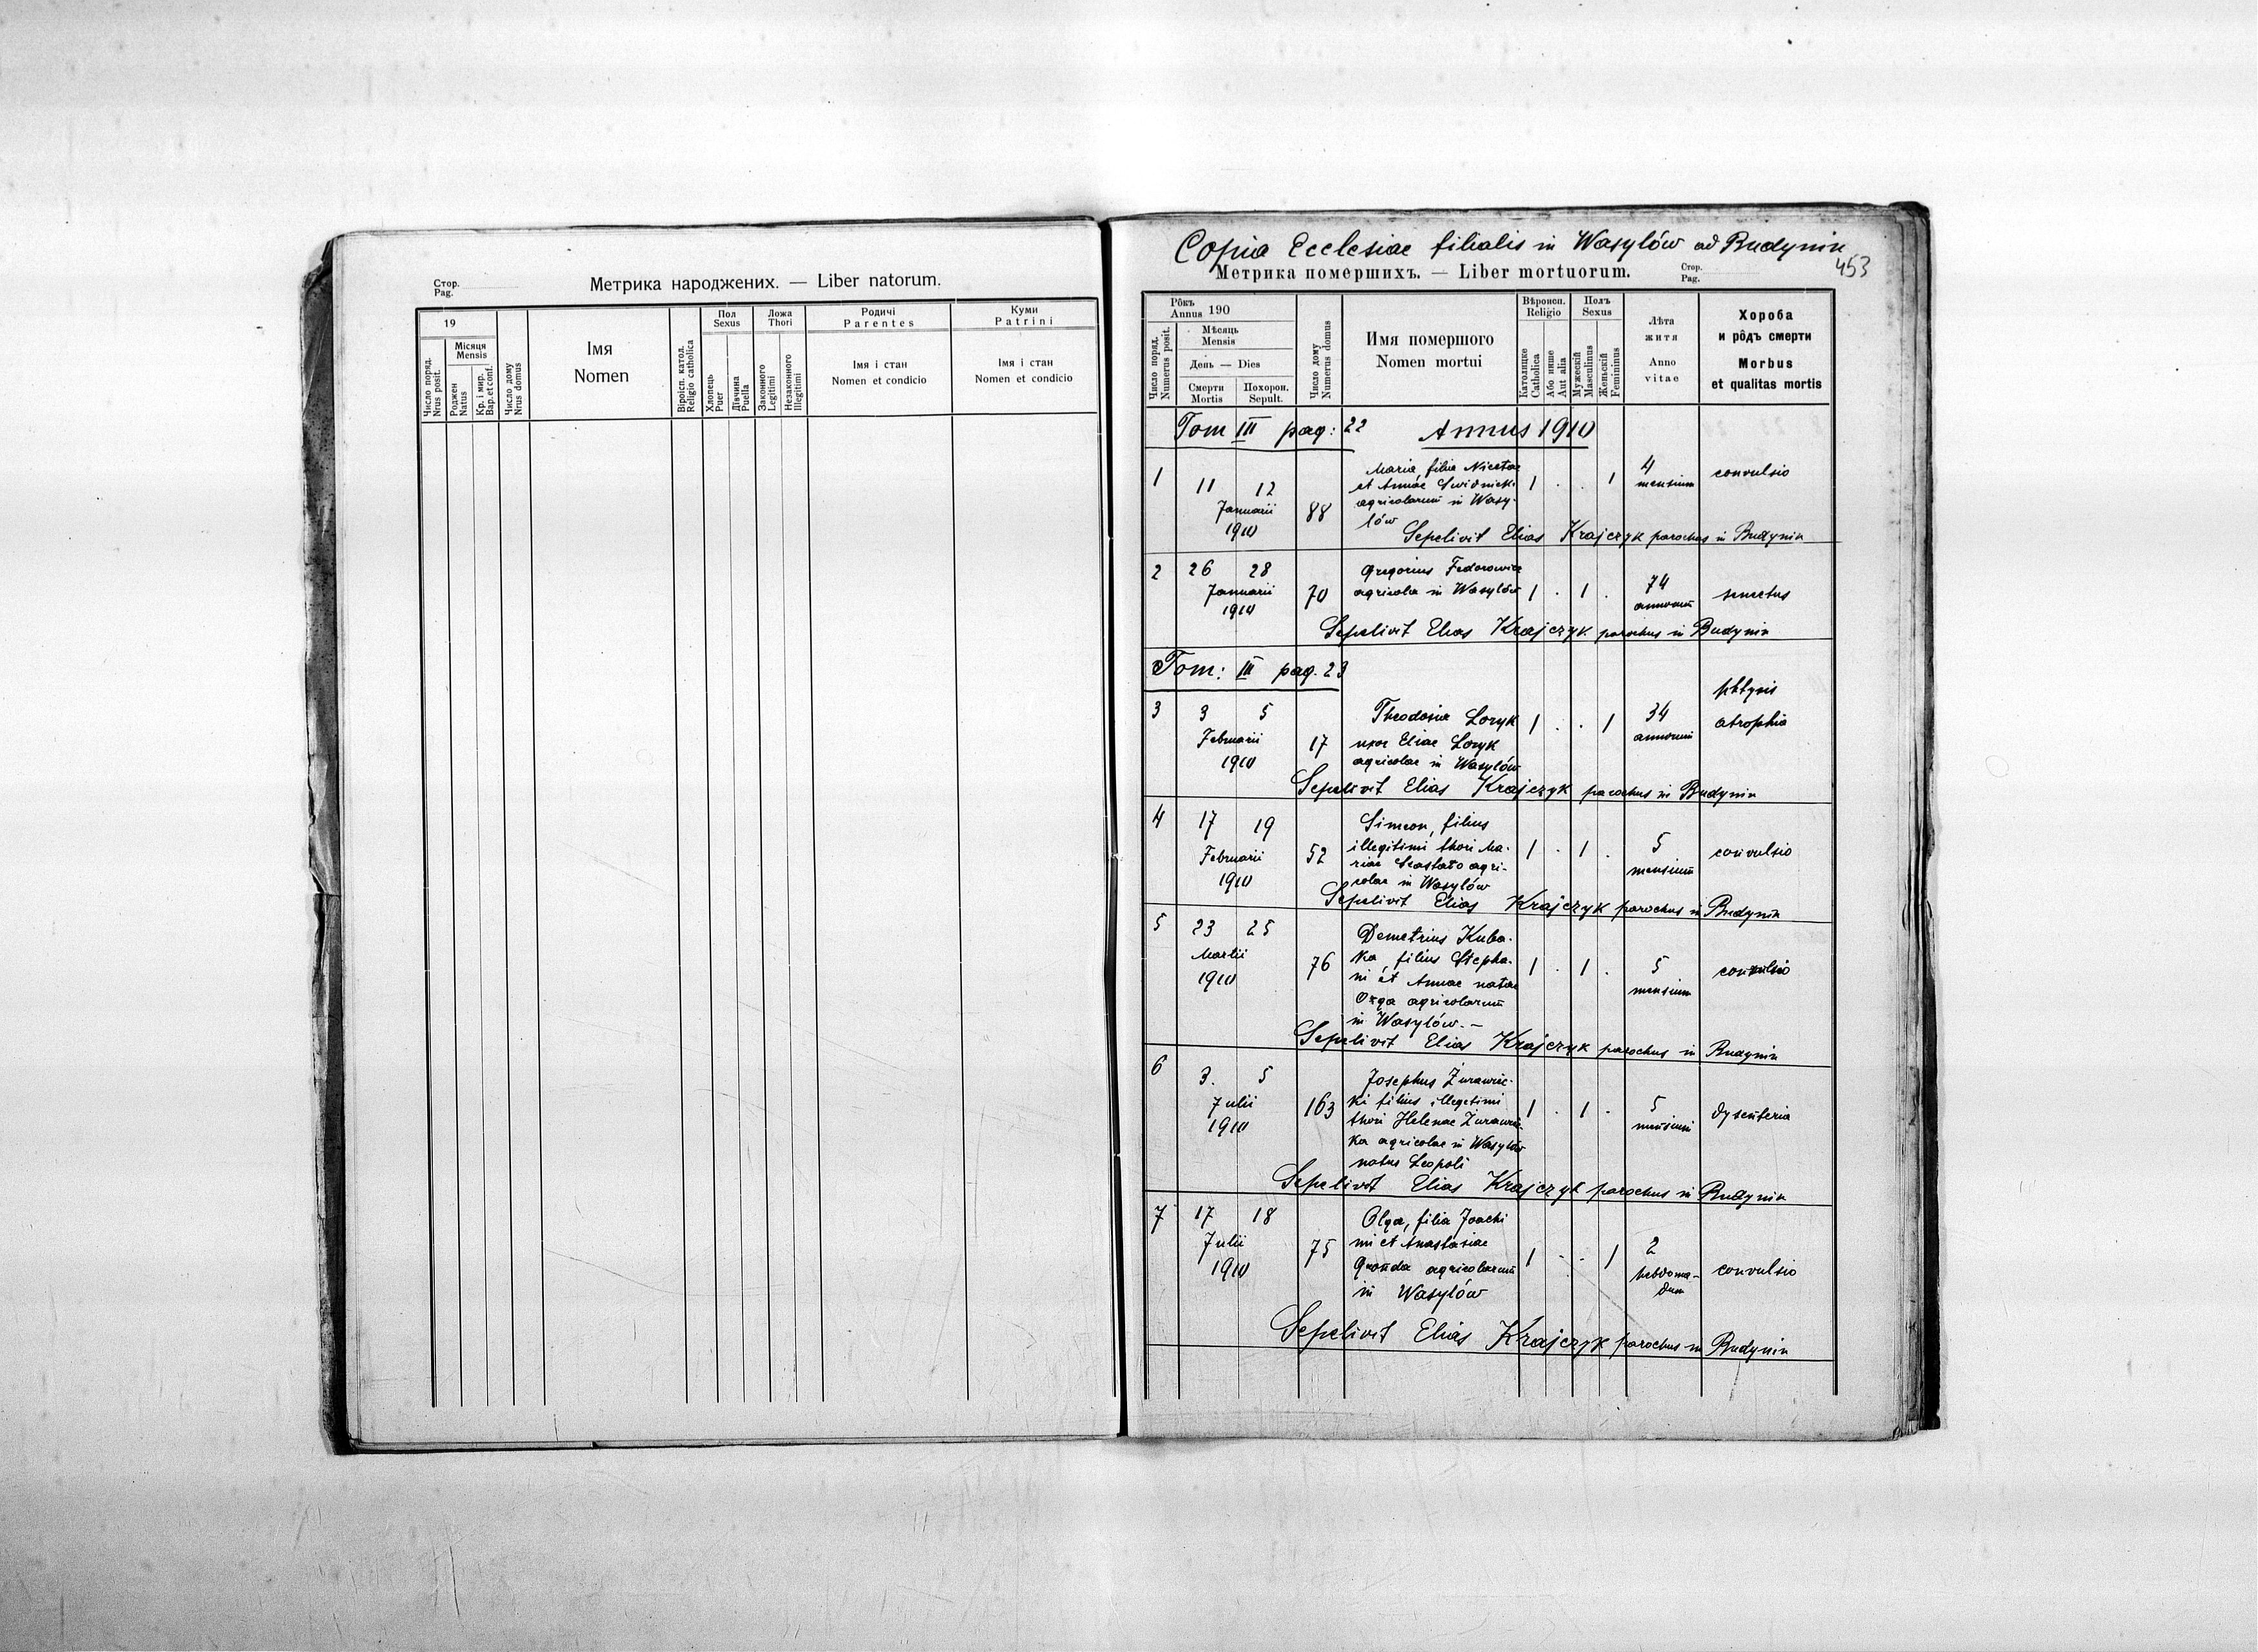 Стор.
Pag.
Метрика народжених. — Liber natorum.
19
Число поряд.
Nrus posit.
Місяця
Mensis
Роджен
Natus
Кр. і мир.
Bap. et conf.
Число дому
Nrus domus
Імя
Nomen
Віроісп. катол.
Religio catholica
Пол
Sexus
Хлопець
Puer
Дївчина
Puella
Ложа
Thori
Законного
Legitimi
Незаконного
Illegitimi
Родичі
Parentes
Імя і стан
Nomen et condicio
Куми
Patrini
Імя і стан
Nomen et condicio
Copia Ecclesiae filialis in Wasylów ad Budynin
453
Метрика померших. — Liber mortuorum.
Стор.
Pag.
Число поряд.
Numerus posit.
Рôкъ
Annus 190
Мѣсяць
Mensis
День — Dies
Смерти
Mortis
Похорон.
Sepult.
Число дому
Numerus domus
Имя помершого
Nomen mortui
Вѣроисп.
Religio
Католицке
Catholica
Або инше
Aut alia
Полъ
Sexus
Мужескій
Masculinus
Женьскій
Femininus
Лѣта
житя
Anno
vitae
Хороба
и рôдъ смерти
Morbus
et qualitas mortis
Tom III pag: 22 Annus 1910
1 11 12 Januarii 1910 88
Maria, filia Nicetae
et Annae Swidnicki
agricolarum in Wasy-
lów
1 . . 1 4 mensium convulsio
Sepelivit Elias Krajczyk parochus in Budynin
2 26 28 Januarii 1910 70
Gregorius Fedorowicz
agricola in Wasylów
1 . 1 . 74 annorum senectus
Sepelivit Elias Krajczyk parochus in Budynin
Tom: III pag. 23
3 3 5 Februarii 1910 17
Theodosia Loryk
uxor Eliae Loryk
agricolae in Wasylów
1 . . 1 34 annorum
atrophia
Sepelivit Elias Krajczyk parochus in Budynin
4 17 19 Februarii 1910 52
Simeon, filius
illegitimi thori Ma-
riae agri-
colae in Wasylów
1 . 1 . 5 mensium convulsio
Sepelivit Elias Krajczyk parochus in Budynin
5 23 25 Martii 1910 76
Demetrius Kuba-
ka, filius Stepha-
ni et Annae natae
agricolarum
in Wasylów. —
1 . 1 . 5 mensium convulsio
Sepelivit Elias Krajczyk parochus in Budynin
6 3. 5 Julii 1910 163
Josephus Zurawic-
ki filius illegitimi
thori Helenae Zurawic-
ka agricolae in Wasylów
natus Leopoli
1 . 1 . 5 mensium dysenteria
Sepelivit Elias Krajczyk parochus in Budynin
7 17 18 Julii 1910 75
Olga, filia Joachi
mi et Anastasiae
agricolarum
in Wasylów
1 . . 1 2 hebdoma-
dum convulsio
Sepelivit Elias Krajczyk parochus in Budynin